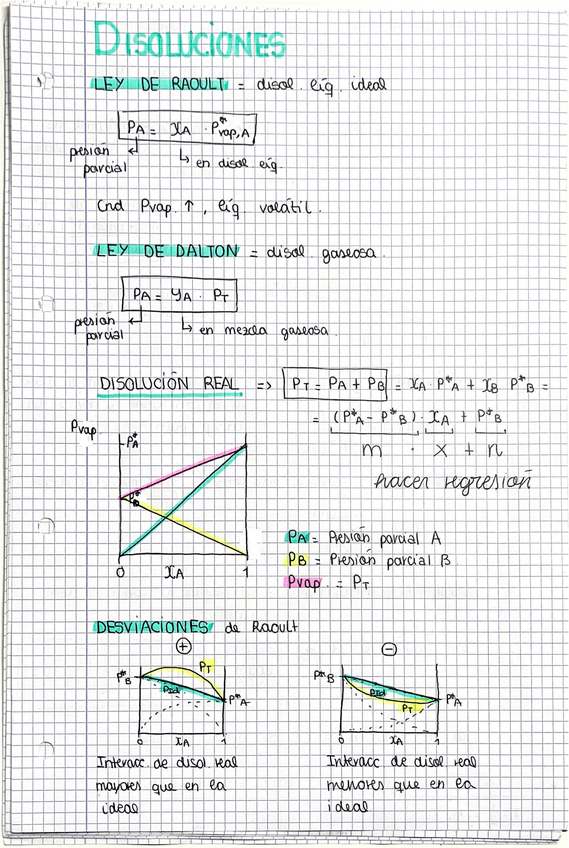 DISOLUCIONES
LEY DE RAOULT = disol. líq. ideal
PA = xA · P*vap,A
presión parcial
↳ en disol. líq.
Cnd Pvap. ↑, líq volátil.
LEY DE DALTON = disol. gaseosa.
PA = yA · PT
presión parcial
↳ en mezcla gaseosa.
DISOLUCIÓN REAL => PT = PA + PB = xA · P*A + xB P*B =
= (P*A - P*B) · xA + P*B
m · x + n
hacer regresión
Pvap.
P*A
P*B
0 xA 1
PA = Presión parcial A
PB = Presión parcial B
Pvap. = PT
DESVIACIONES de Raoult
+
P*B PT
Pid P*A
0 xA 1
Interacc. de disol real
mayores que en la
ideal
-
P*B Pid
PT P*A
0 xA 1
Interacc de disol real
menores que en la
ideal